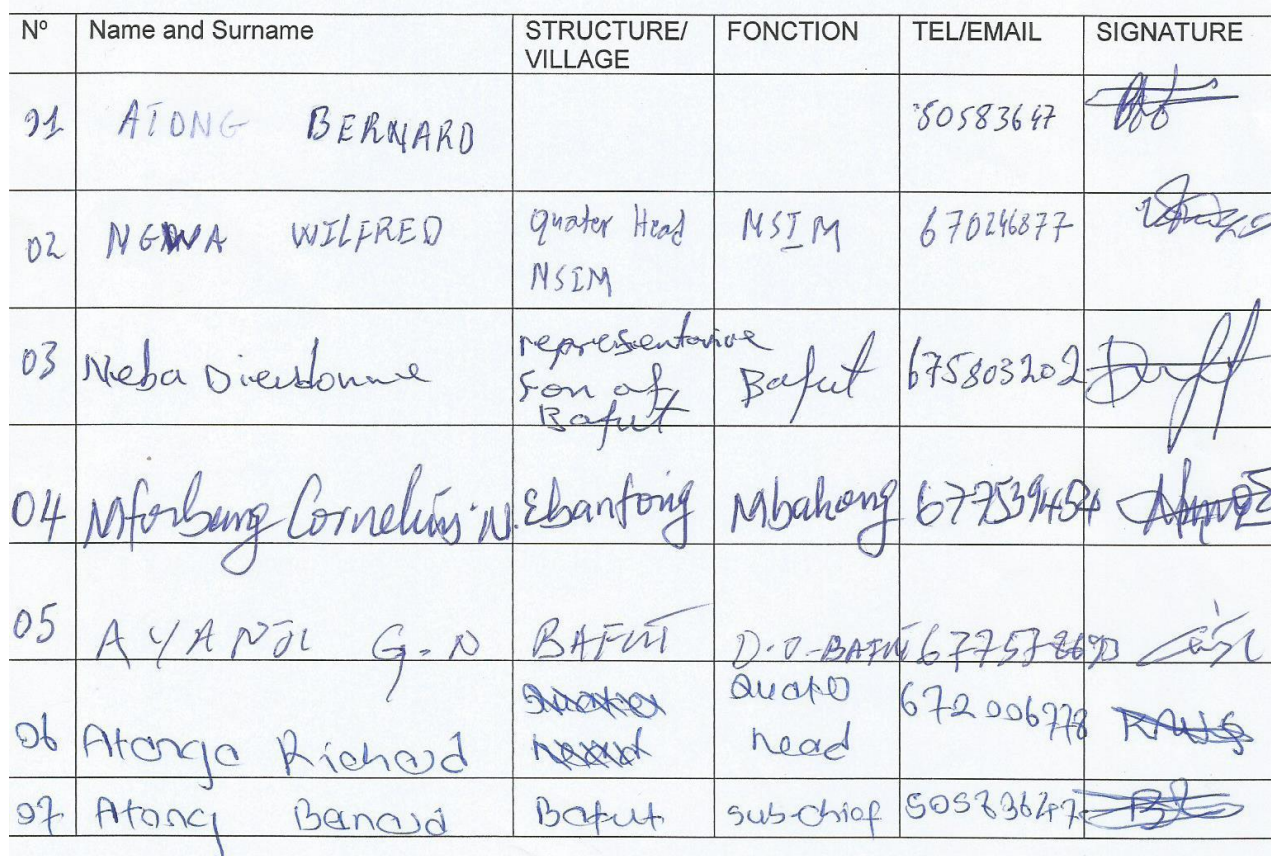 Nº Name and Surname STRUCTURE/ VILLAGE FONCTION TEL/EMAIL SIGNATURE
01 ATONG BERNARD
02 NGWA WILFRED quater Head NSIM NSIM 670246877
03 Neba Dieudonne representative Fon of Bafut Bafut 675803202
04 Mforbang Cornelius N. Ebanfong Mbakong 677539454
05 G.N BAFUT D.O-BAFUT
06 Atanga Richard Quato head 672006778
07 Atong Benard Bafut sub-chief